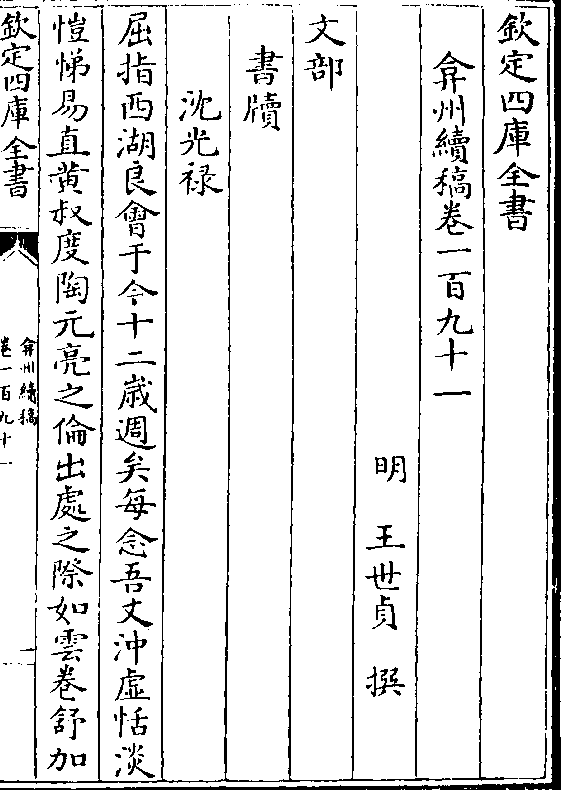 欽定四庫全書
弇州續稿卷一百九十一
明 王世貞 撰
文部
書牘
沈光禄
屈指西湖良會于今十二歲週矣每念吾丈沖虛恬淡
愷悌易直黃叔度陶元亮之倫出處之際如雲卷舒加
欽定四庫全書
弇州續稿
卷一百九十一
一